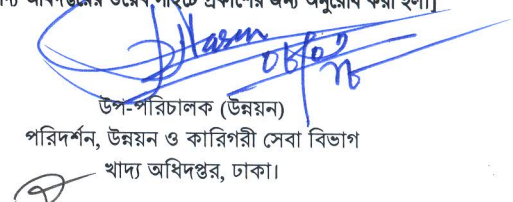 অধিদপ্তরের ওয়েব সাইটে প্রকাশের জন্য অনুরোধ করা হলো]
Hasan
উপ-পরিচালক (উন্নয়ন)
পরিদর্শন, উন্নয়ন ও কারিগরী সেবা বিভাগ
খাদ্য অধিদপ্তর, ঢাকা।